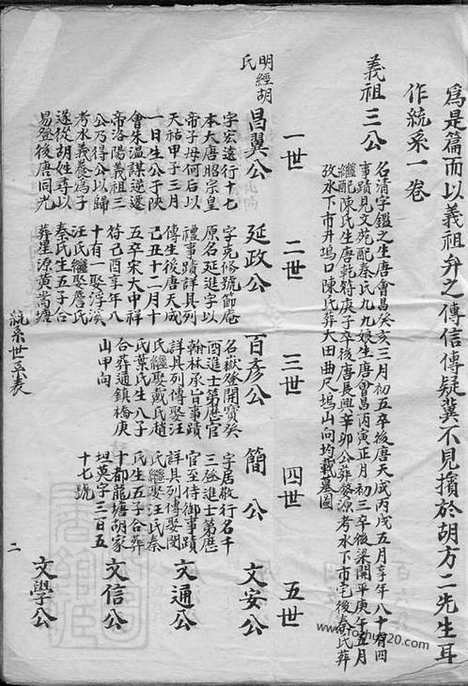 為是篇而以義祖弁之傳信傳疑冀不見擯於胡方二先生耳
作統系一卷
義祖三公
名清字鑑之生唐會昌癸亥三月初五卒後唐天成丙戌五月享年八十有四
事蹟見文苑配秦氏九九娘生唐會昌丙寅正月初三卒後梁開平庚午五月
繼配陳氏生唐乾符庚子卒後唐長興辛卯公葬婺源考水下市宅後秦氏葬
考水下市井塢口陳氏葬大田曲尺塢山向均載墓圖
一世
二世
三世
四世
五世
明經胡
氏
昌翼公
字宏遠行十七
本大唐昭宗皇
帝子母何后以
天祐甲子三月
一日生公于陝
會朱溫謀逆遷
帝洛陽義祖三
公乃得公以歸
考水義養為子
遂從胡姓尋以
易登後唐同光
延政公
字克脩號節庵
原名延進字以
禮事蹟詳具列
傳生後唐天成
己丑十二月十
五卒宋大中祥
符己酉享年八
十有一娶浮溪
汪氏繼娶詹氏
秦氏生五子合
葬星源黃蒿塘
百彥公
名嶽登開寶癸
酉進士第歷官
翰林承旨事蹟
詳具列傳娶汪
氏繼娶戴氏趙
氏葉氏生八子
合葬通鎮橋庚
山甲向
簡公
字居敬行名千
三登進士第歷
官至侍御事蹟
詳具列傳娶閔
氏繼娶汪氏秦
氏生五子合葬
十都龍塘胡家
坦英字三百五
十七號
文安公
文通公
文信公
文學公
統系世系表
二